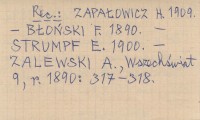 Rec.: ZAPAŁOWICZ H. 1909.
– BŁOŃSKI F. 1890. –
STRUMPF E. 1900. –
ZALEWSKI A., Wszechświat
9, r. 1890: 317–318.